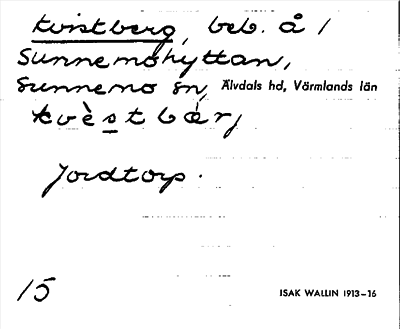 Kvistberg, beb. å /
Sunnemohyttan,
Sunnemo sn, Älvdals hd, Värmlands län
kvèstbárj
Jordtorp.
15
ISAK WALLIN 1913–16